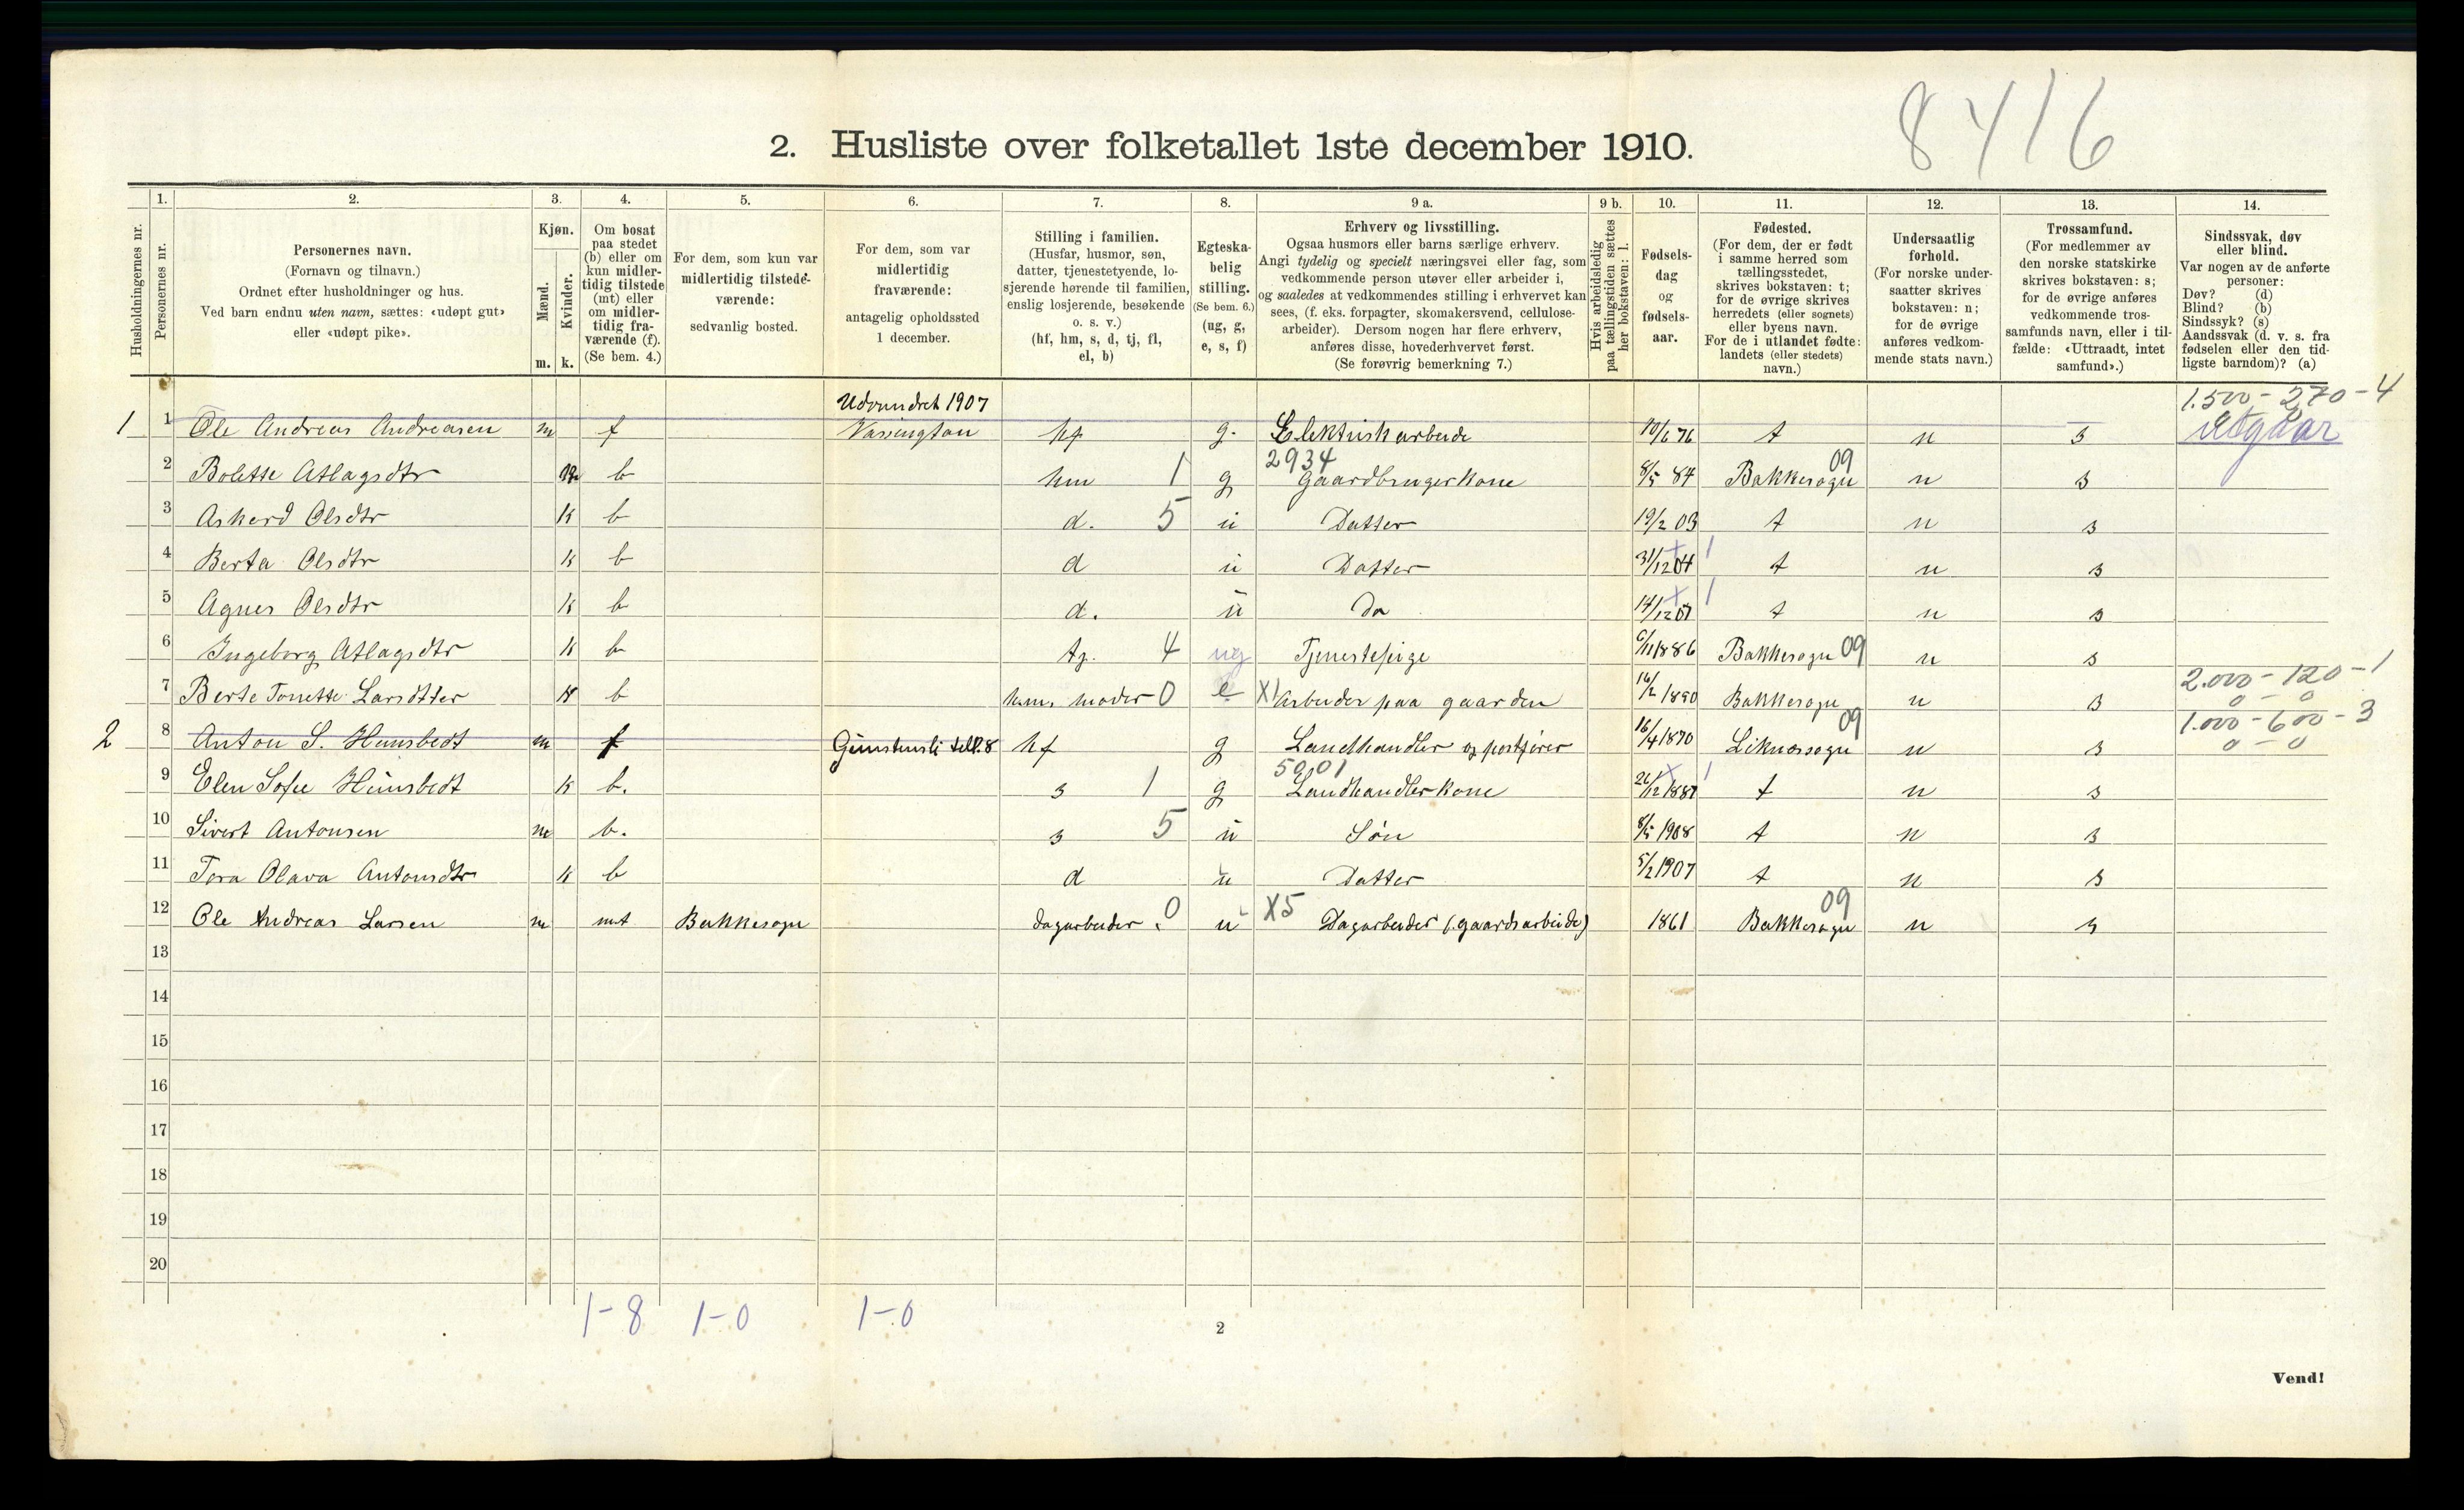 8416
2. Husliste over folketallet 1ste december 1910.
Husholdningernes nr.
1. Personernes nr.
2. Personernes navn.
(Fornavn og tilnavn.)
Ordnet efter husholdninger og hus.
Ved barn endnu uten navn, sættes: «udøpt gut»
eller «udøpt pike».
3. Kjøn.
Mænd. m.
Kvinder. k.
4. Om bosat
paa stedet
(b) eller om
kun midler-
tidig tilstede
(mt) eller
om midler-
tidig fra-
værende (f).
(Se bem. 4.)
5. For dem, som kun var
midlertidig tilstede-
værende:
sedvanlig bosted.
6. For dem, som var
midlertidig
fraværende:
antagelig opholdssted
1 december.
7. Stilling i familien.
(Husfar, husmor, søn,
datter, tjenestetyende, lo-
sjerende hørende til familien,
enslig losjerende, besøkende
o. s. v.)
(hf, hm, s, d, tj, fl,
el, b)
8. Egteska-
belig
stilling.
(Se bem. 6.)
(ug, g,
e, s, f)
9 a. Erhverv og livsstilling.
Ogsaa husmors eller barns særlige erhverv.
Angi tydelig og specielt næringsvei eller fag, som
vedkommende person utøver eller arbeider i,
og saaledes at vedkommendes stilling i erhvervet kan
sees, (f. eks. forpagter, skomakersvend, cellulose-
arbeider). Dersom nogen har flere erhverv,
anføres disse, hovederhvervet først.
(Se forøvrig bemerkning 7.)
9 b. Hvis arbeidsledig
paa tællingstiden sættes
her bokstaven: l.
10. Fødsels-
dag
og
fødsels-
aar.
11. Fødested.
(For dem, der er født
i samme herred som
tællingsstedet,
skrives bokstaven: t;
for de øvrige skrives
herredets (eller sognets)
eller byens navn.
For de i utlandet fødte:
landets (eller stedets)
navn.)
12. Undersaatlig
forhold.
(For norske under-
saatter skrives
bokstaven: n;
for de øvrige
anføres vedkom-
mende stats navn.)
13. Trossamfund.
(For medlemmer av
den norske statskirke
skrives bokstaven: s;
for de øvrige anføres
vedkommende tros-
samfunds navn, eller i til-
fælde: «Uttraadt, intet
samfund».)
14. Sindssvak, døv
eller blind.
Var nogen av de anførte
personer:
Døv? (d)
Blind? (b)
Sindssyk? (s)
Aandssvak (d. v. s. fra
fødselen eller den tid-
ligste barndom)? (a)
Udvandret 1907 1.500 - 270 - 4
1 1 Ole Andreas Andreasen m f Vassengton hf g. Elektrisk arbeide 10/6 76 t n s Utgaar
2934 09
2 Bolette Atlagsdtr k b hm 1 g Gaardbrugerkone 8/5 84 Bakkesogn n s
3 Askerd Olsdtr k b d. 5 u Datter 19/2 03 t n s
4 Berta Olsdtr k b d u Datter 31/12 04 t n s
5 Agnes Olsdtr k b d. u Do 14/12 07 t n s
6 Ingeborg Atlagsdtr k b tj. 4 ug Tjenestepige 6/11 1886 Bakkesogn 09 n s
2.000 - 120 - 1
7 Berte Tonette Larsdtter k b hms moder 0 e X1 Arbeider paa gaarden 16/2 1850 Bakkesogn n s 0 - 0
09 1.000 - 600 - 3
2 8 Anton S. Hunsbedt m f hf g Landhandler og postfører 16/4 1870 Liknessogn n s 0 - 0
5901
9 Elen Sofie Hunsbedt k b. s 1 g Landhandlerkone 26/12 1887 t n s
10 Sivert Antonsen m b. s 5 u Søn 8/5 1908 t n s
11 Tora Olava Antonsdtr k b d u Datter 5/2 1907 t n s
09
12 Ole Andreas Larsen m mt Bakkesogn dagarbeider. 0 u X5 Dagarbeider (gaardsarbeide) 1861 Bakkesogn n s
13
14
15
16
17
18
19
20
1-8 1-0 1-0
2
Vend!